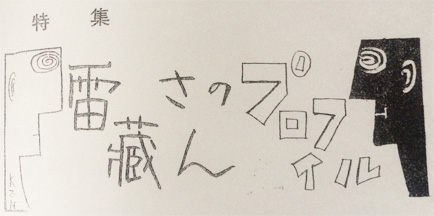 特集
雷藏さんのプロフイル